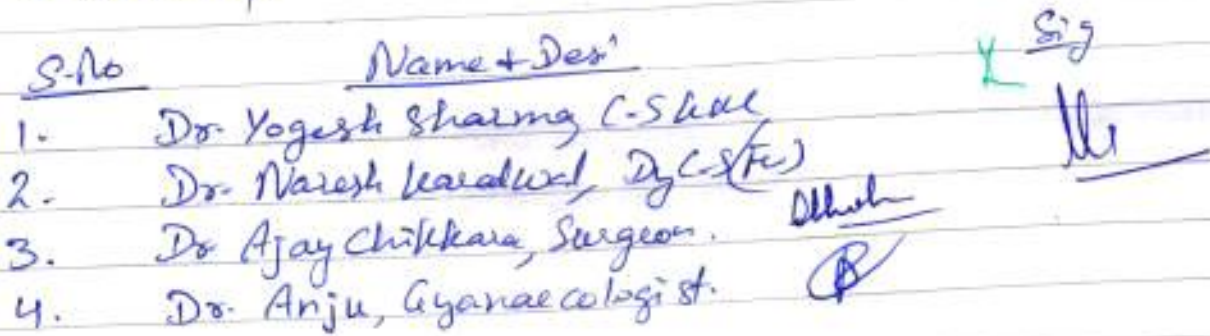 S.No Name + Desi' Sig
1. Dr. Yogesh Sharma C.S
2. Dr. Naresh Karadwal, Dy C.S (FW)
3. Dr Ajay Chikkara, Surgeon.
4. Dr. Anju, Gyanaecologist.